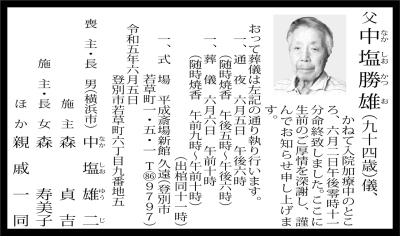 父中塩勝雄(九十四歳)儀、
なか しお かつ お
かねて入院加療中のとこ
ろ、六月二日午後零時十一
分命終致しました。ここに
生前のご厚情を深謝し、謹
んでお知らせ申し上げま
す。
おって葬儀は左記の通り執り行います。
一、通夜 六月五日 午後六時
(随時焼香 午後五時〜午後六時)
一、葬儀 六月六日 午前十時
(随時焼香 午前九時〜午前十時)
(出棺同十一時)
一、式場 平成斎場新館久遠(登別市
若草町一・五・一 T86 9797)
令和五年六月五日
登別市若草町六丁目九番地五
喪主・長男(横浜市) 中塩雄二
なか しお ゆう じ
施主 森 貞吉
施主・長女 森 寿美子
ほか親戚一同